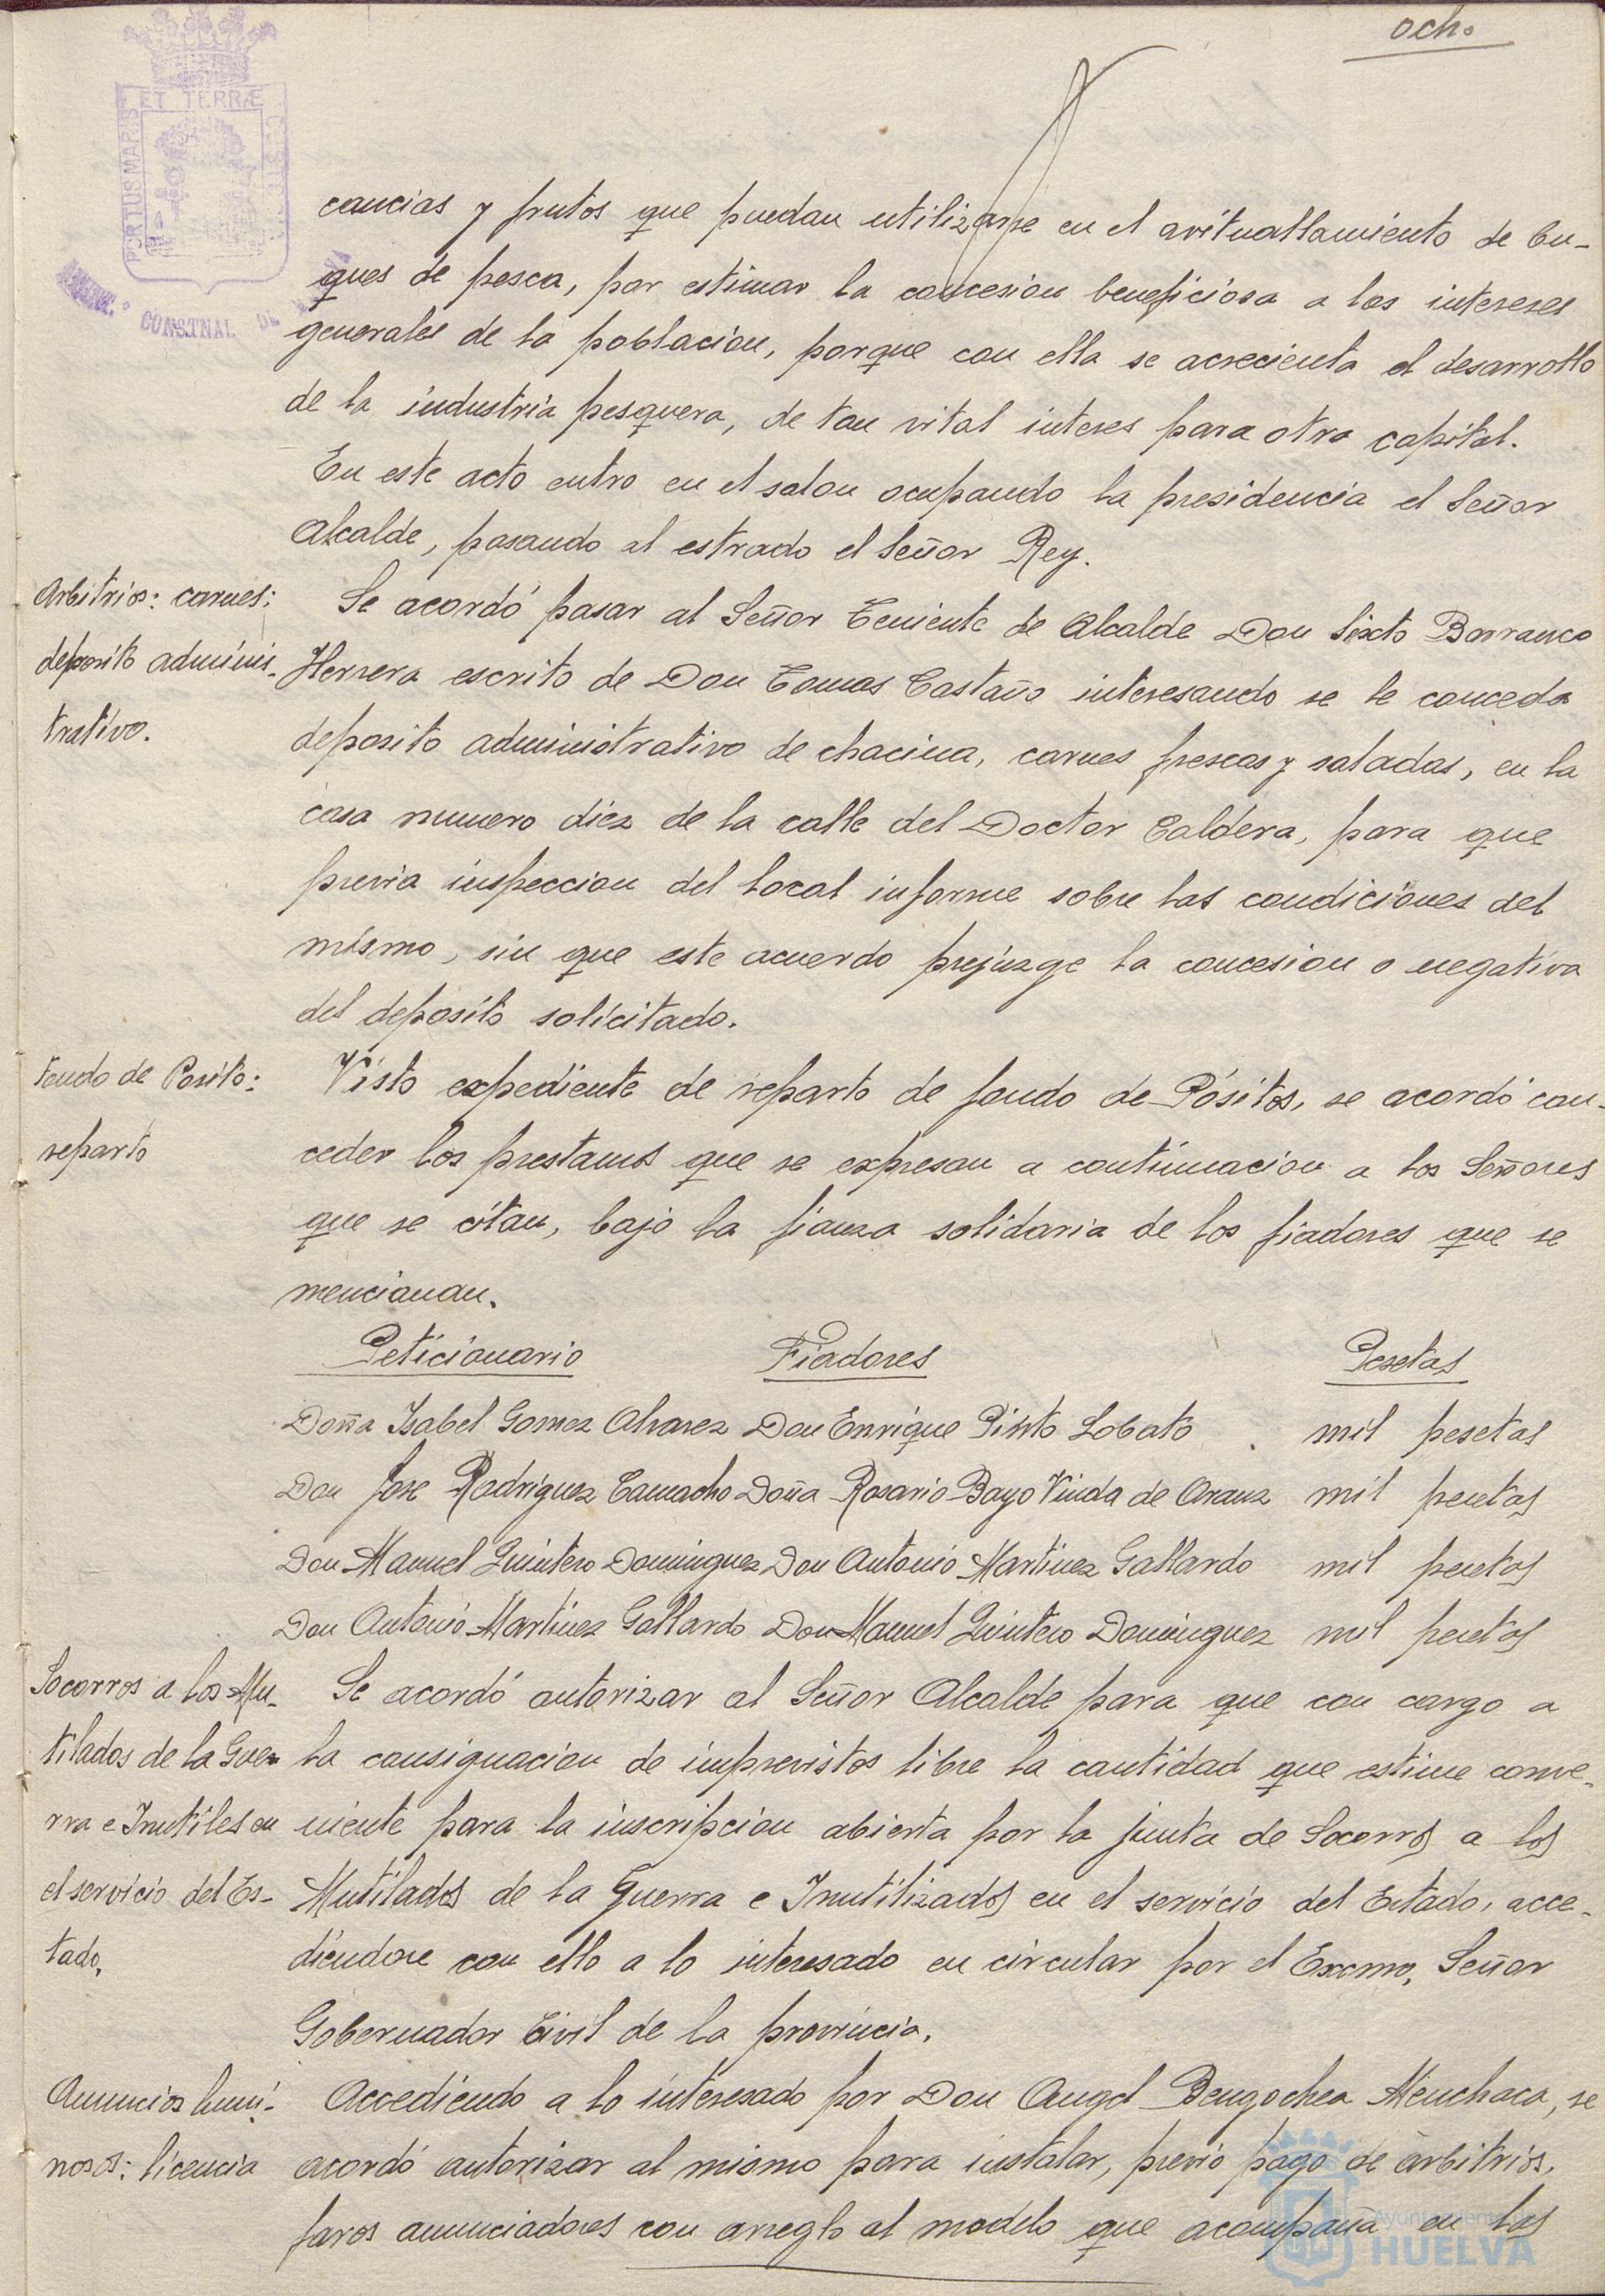 ocho
PORTUS MARIS ET TERRÆ CUSTO
CONSTNAL DE
cancias y frutos que puedan utilizarse en el avituallamiento de bu-
ques de pesca, por estimar la concesion beneficiosa a los intereses
generales de la poblacion, porque con ella se acrecienta el desarrollo
de la industria pesquera, de tan vital interes para otra capital.
En este acto entro en el salon ocupando la presidencia el Señor
Alcalde, pasando al estrado el Señor Rey.
Arbitrios: carnes:
deposito adminis-
trativo.
Se acordó pasar al Señor Teniente de Alcalde Don Sixto Barranco
Herrera escrito de Don Tomas Castaño interesando se le conceda
deposito administrativo de chacina, carnes frescas y saladas, en la
casa numero diez de la calle del Doctor Caldera, para que
previa inspeccion del local informe sobre las condiciones del
mismo, sin que este acuerdo prejuzge la concesion o negativa
del deposito solicitado.
Fondo de Posito:
reparto
Visto expediente de reparto de fondo de Pósitos, se acordó con-
ceder los prestamos que se expresan a continuacion a los Señores
que se citan, bajo la fianza solidaria de los fiadores que se
mencionan.
Peticionario Fiadores Pesetas
Doña Isabel Gomez Alvarez Don Enrique Pinto Lobato mil pesetas
Don Jose Rodriguez Camacho Doña Rosario Bayo Viuda de Aranz mil pesetas
Don Manuel Quintero Dominguez Don Antonio Martinez Gallardo mil pesetas
Don Antonio Martinez Gallardo Don Manuel Quintero Dominguez mil pesetas
Socorros a los Mu-
tilados de la Gue-
rra e Inutiles en
el servicio del Es-
tado.
Se acordó autorizar al Señor Alcalde para que con cargo a
la consignacion de imprevistos libre la cantidad que estime conve-
niente para la inscripcion abierta por la junta de Socorros a los
Mutilados de la Guerra e Inutilizados en el servicio del Estado, acce-
diendose con ello a lo interesado en circular por el Excmo. Señor
Gobernador Civil de la provincia.
Anuncios lumi-
nosos: licencia
Accediendo a lo interesado por Don Angel Bengochea Menchaca, se
acordó autorizar al mismo para instalar, previo pago de arbitrios,
faros anunciadores con arreglo al modelo que acompaña en las
Ayuntamiento de
HUELVA